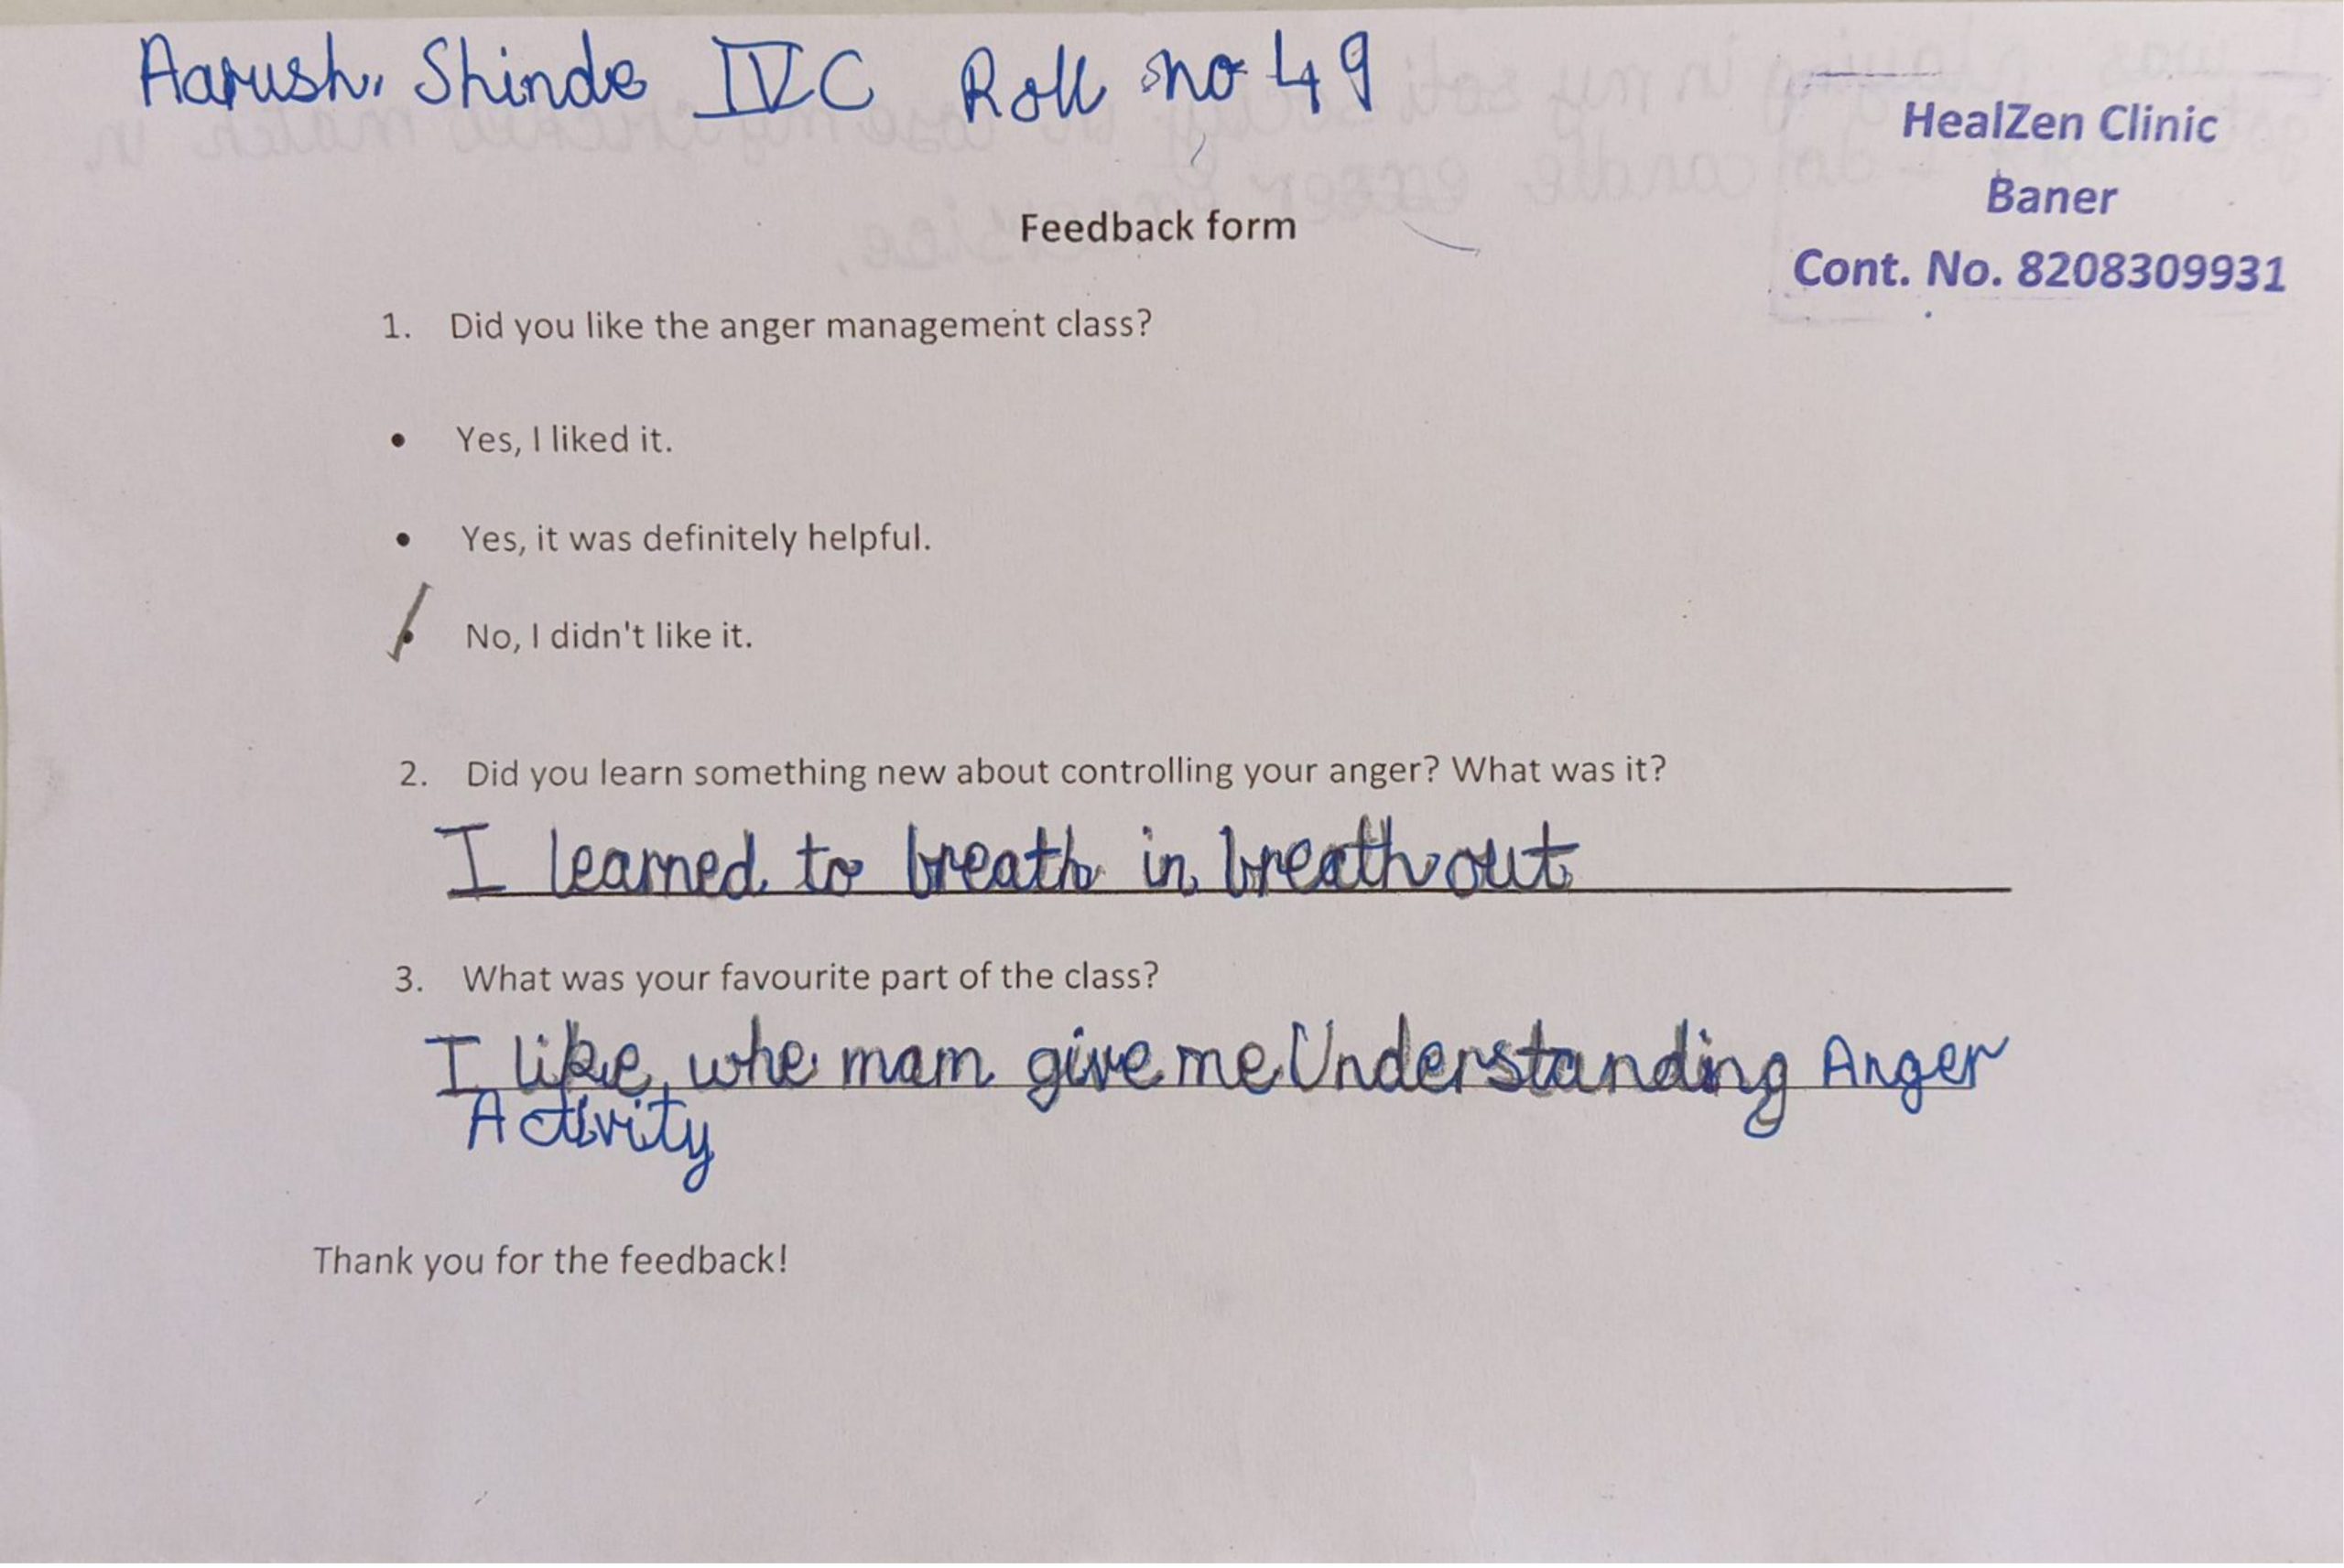 Aarush Shinde IV C Roll no 49
HealZen Clinic
Baner
Cont. No. 8208309931
Feedback form
1. Did you like the anger management class?
• Yes, I liked it.
• Yes, it was definitely helpful.
• No, I didn't like it.
2. Did you learn something new about controlling your anger? What was it?
I learned to breath in breath out
3. What was your favourite part of the class?
I like whe mam give me Understanding Anger
Activity
Thank you for the feedback!